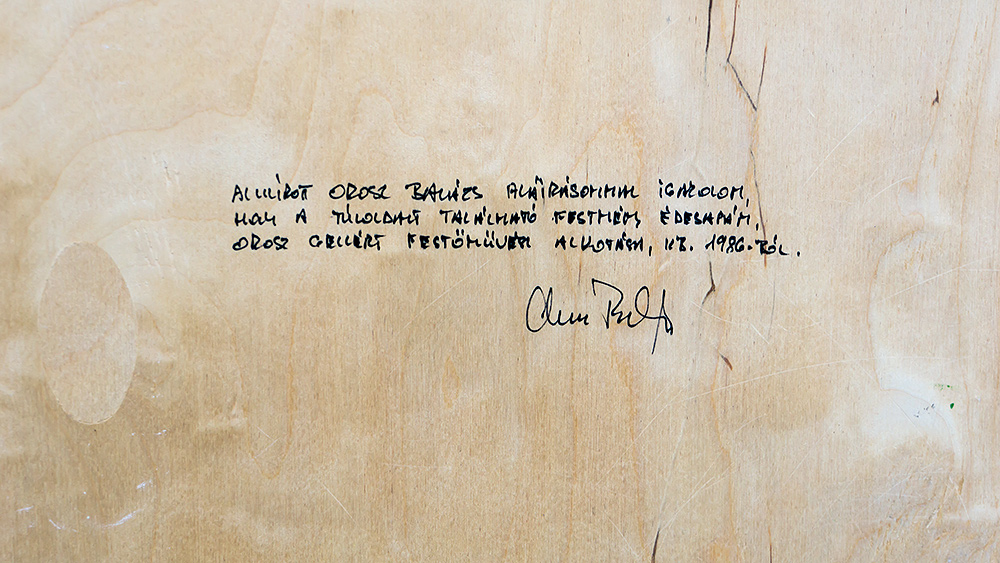 ALULÍROT OROSZ BALÁZS ALÁÍRÁSOMMAL IGAZOLOM,
HOGY A TÚLOLDALT TALÁLHATÓ FESTMÉNY, ÉDESAPÁM,
OROSZ GELLÉRT FESTŐMŰVÉSZ ALKOTÁSA, KB. 1986-BÓL.